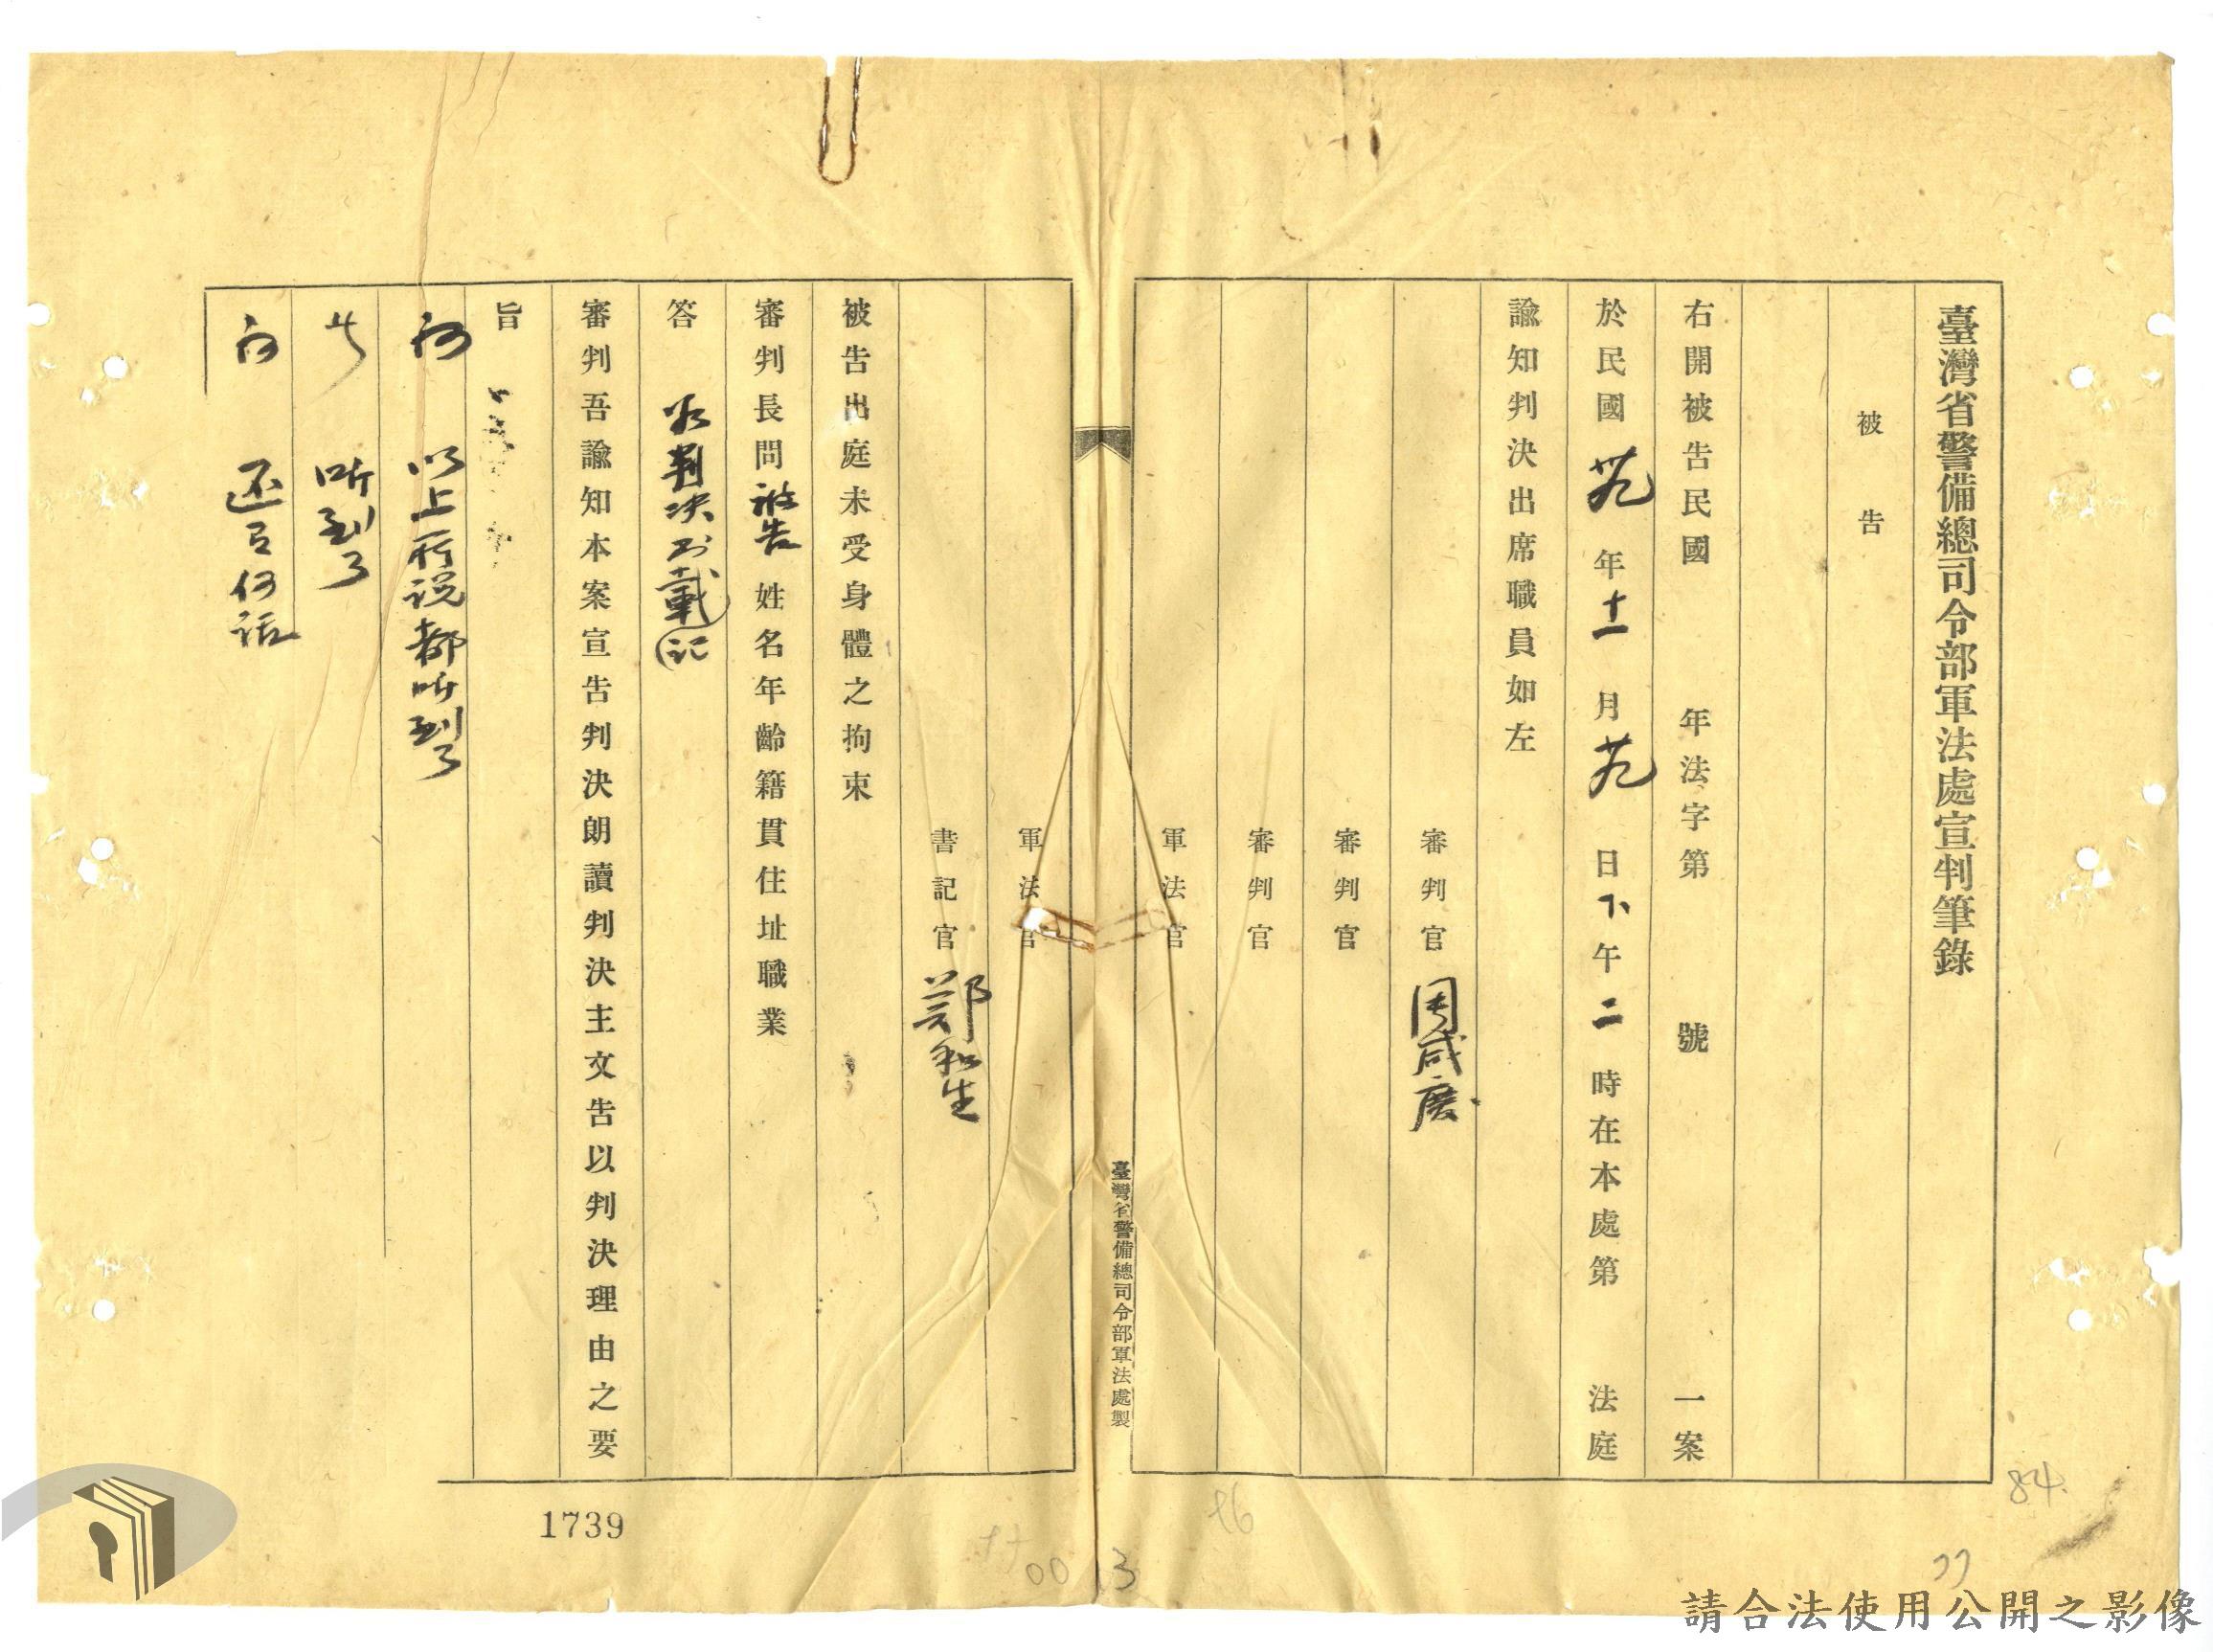 臺灣省警備總司令部軍法處宣判筆錄
被告
右開被告民國 年法字第 號 一案
於民國卅九年十一月廿九日下午二時在本處第 法庭
諭知判決出席職員如左
審判官 周咸慶
審判官
審判官
軍法官
臺灣省警備總司令部軍法處製
軍法官
書記官 鄭和生
被告出庭未受身體之拘束
審判長問被告姓名年齡籍貫住址職業
答 判决 載(記
審判吾諭知本案宣告判決朗讀判決主文告以判決理由之要
旨
問 以上所说都听到了
答 听到了
問 还有何话
1739
84
76
77
00 3
請合法使用公開之影像